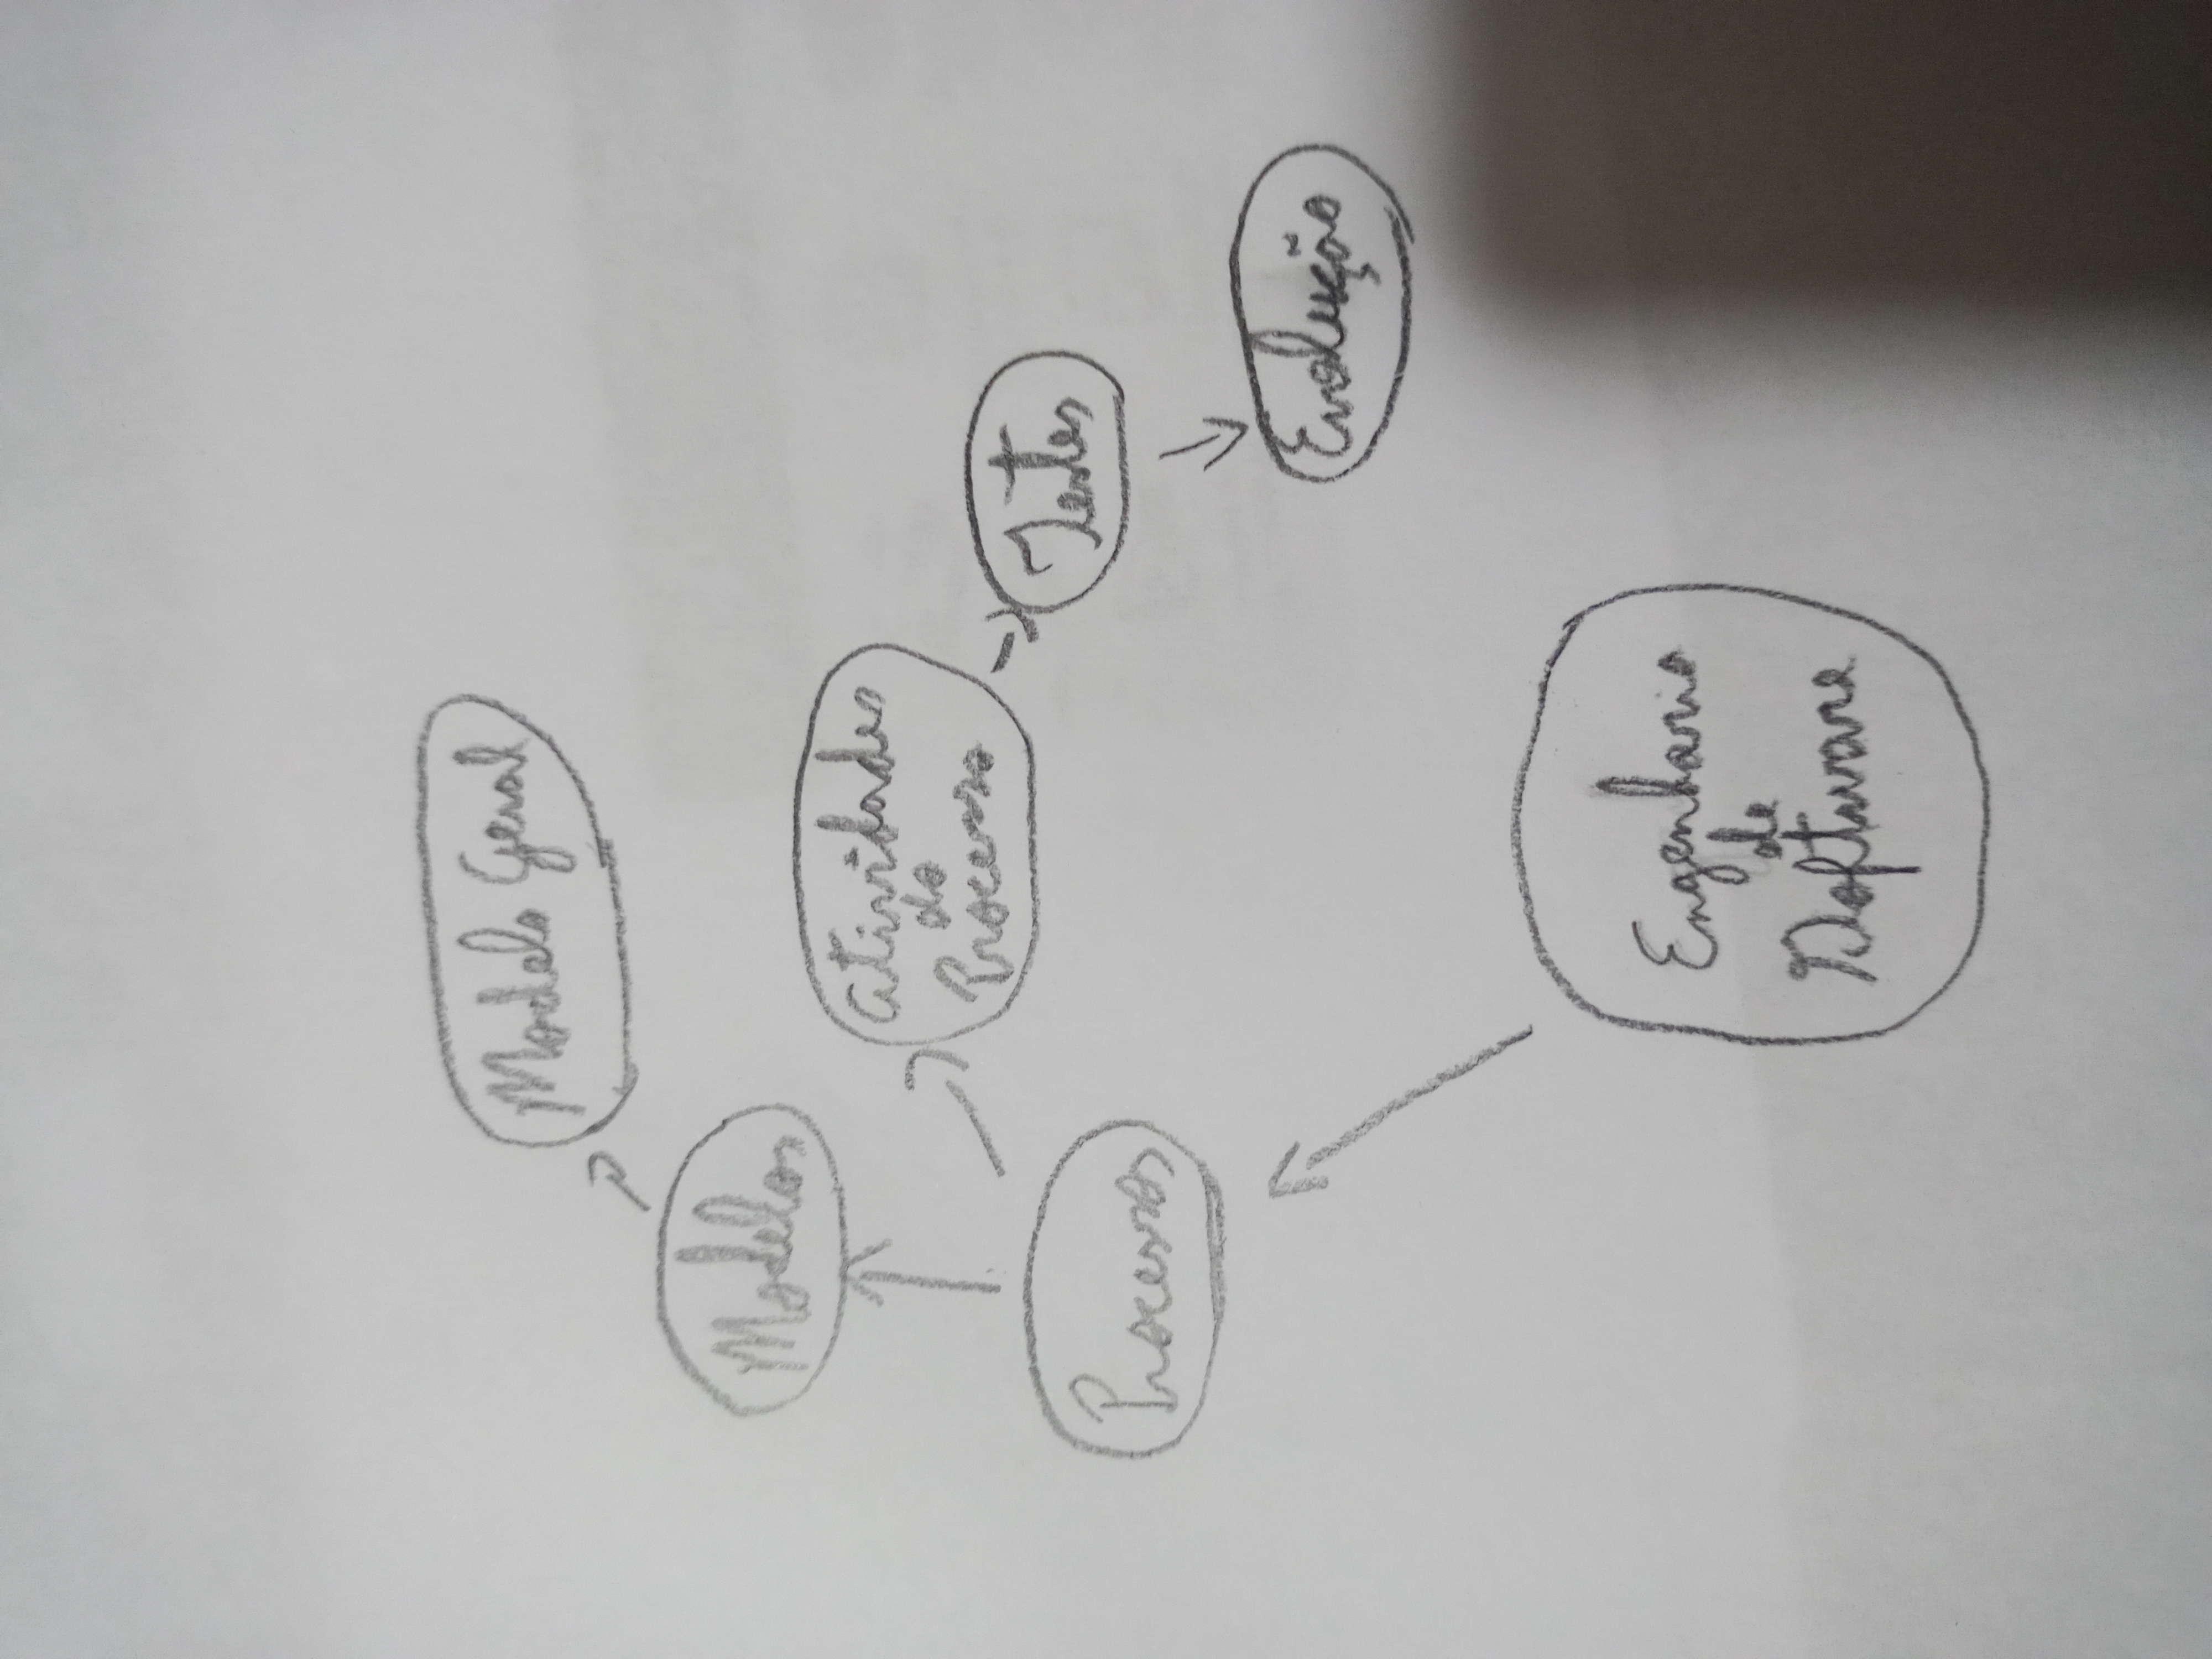 Modelo Geral
Modelos
Atividades
do
Processo
Testes
Processos
Evolução
Engenharia
de
Software